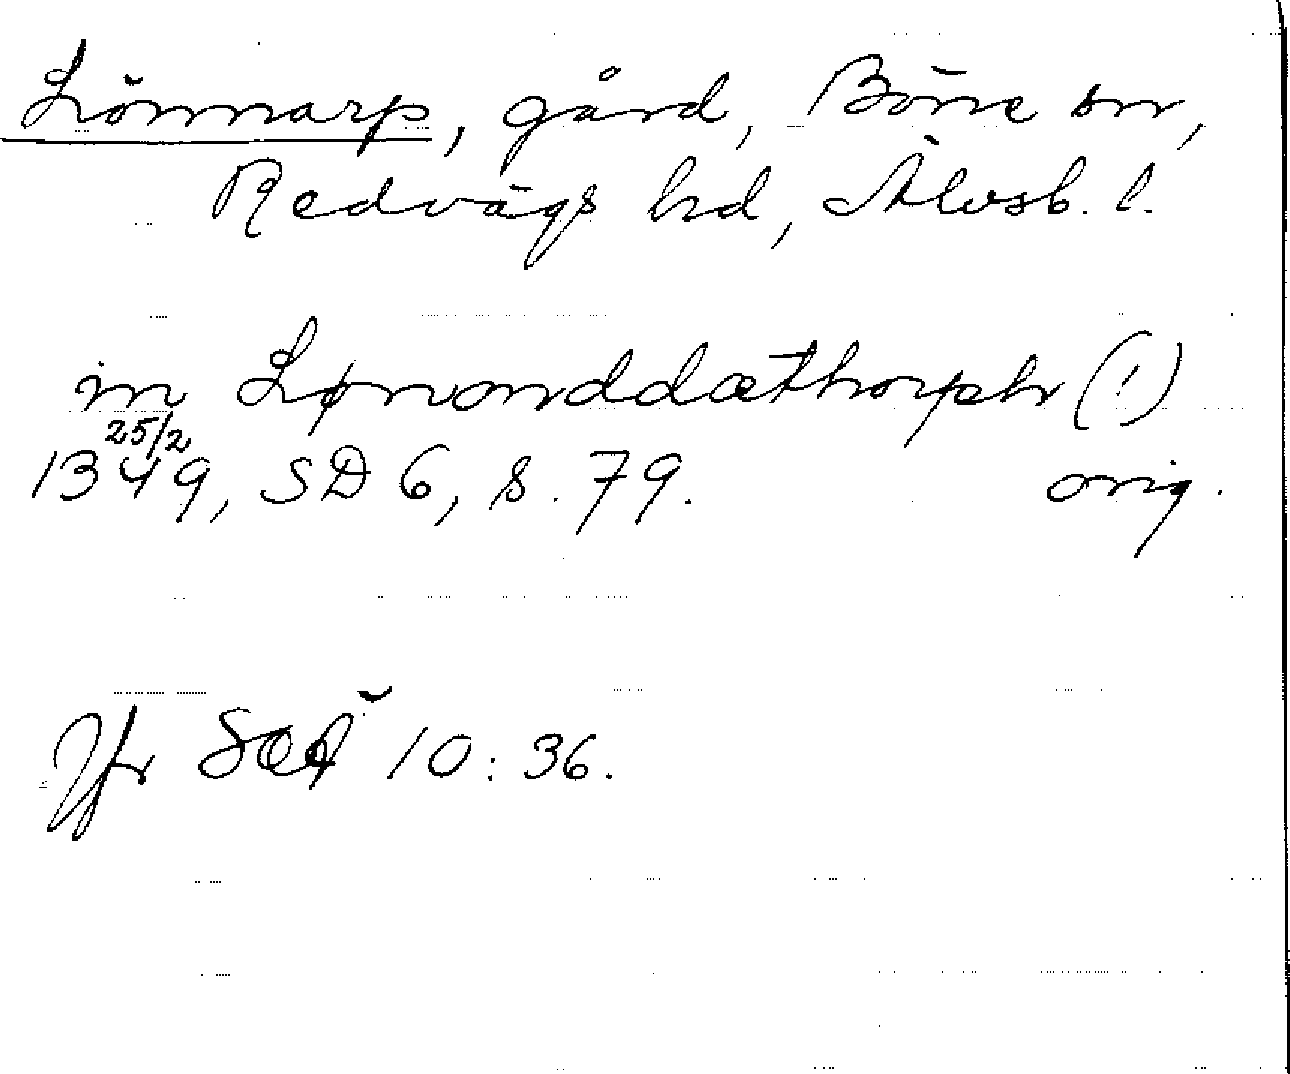 Lönnarp, gård, Böne sn,
Redvägs hd, Älvsb. l.
in Lønonddæthorph (!)
25/2
1349, SD 6, s. 79. orig.
Jfr SOÄ 10: 36.